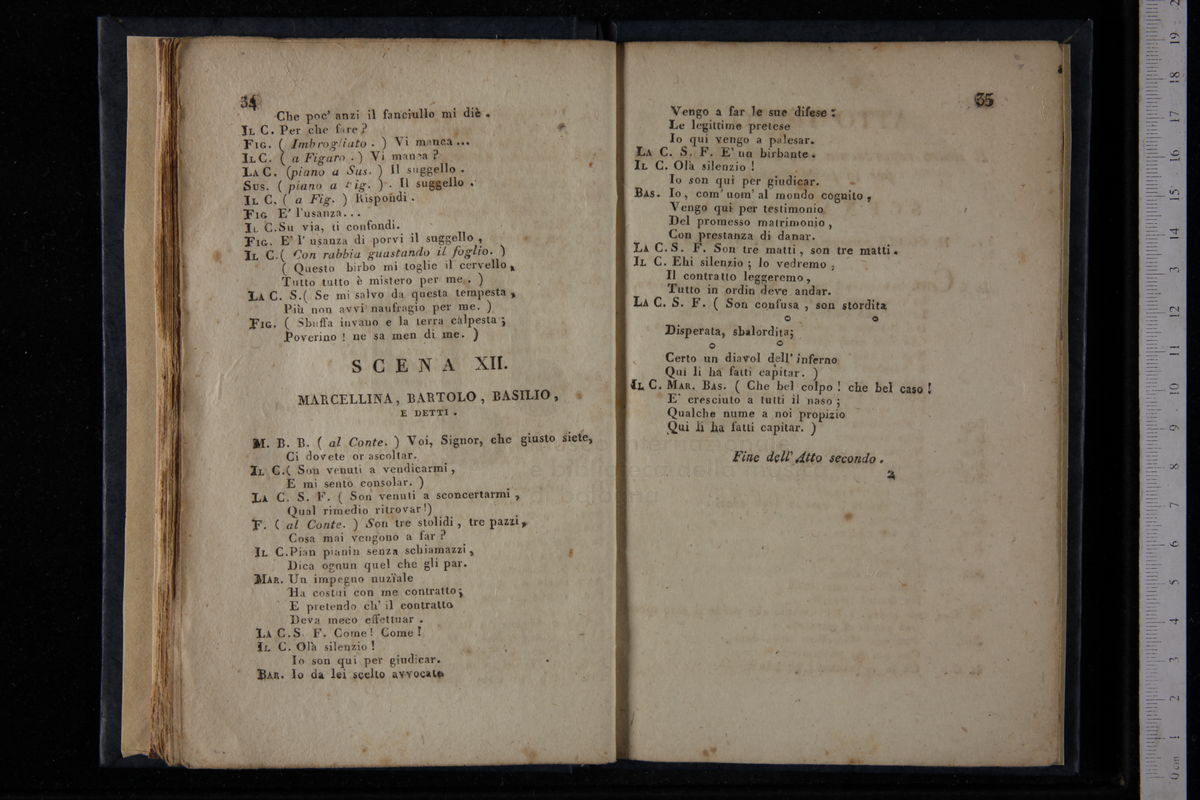 34
Che poc' anzi il fanciullo mi diè .
IL C. Per che fare ?
FIG. ( Imbrogliato . ) Vi manca ...
IL C. ( a Figaro . ) Vi manca ?
LA C. (piano a Sus. ) Il suggello .
SUS. ( piano a Fig. ) . Il suggello .
IL C. ( a Fig. ) Rispondi .
FIG E' l'usanza...
IL C.Su via, ti confondi.
FIG. E' l' usanza di porvi il suggello ,
IL C.( Con rabbia guastando il foglio. )
( Questo birbo mi toglie il cervello ,
Tutto tutto è mistero per me . )
LA C. S.( Se mi salvo da questa tempesta ,
Più non avvi naufragio per me. )
FIG. ( Sbuffa invano e la terra calpesta ;
Poverino ! ne sa men di me. )
SCENA XII.
MARCELLINA, BARTOLO, BASILIO,
E DETTI .
M. B. B. ( al Conte. ) Voi, Signor, che giusto siete,
Ci dovete or ascoltar.
IL C.( Son venuti a vendicarmi ,
E mi sento consolar. )
LA C. S. F. ( Son venuti a sconcertarmi ,
Qual rimedio ritrovar!)
F. ( al Conte. ) Son tre stolidi , tre pazzi,
Cosa mai vengono a far ?
IL C.Pian pianin senza schiamazzi ,
Dica ognun quel che gli par.
MAR. Un impegno nuzïale
Ha costui con me contratto ;
E pretendo ch' il contratto
Deva meco effettuar .
LA C.S. F. Come! Come !
IL C. Olà silenzio !
Io son qui per giudicar.
BAR. Io da lei scelto avvocato
35
Vengo a far le sue difese :
Le legittime pretese
Io qui vengo a palesar.
LA C. S. F. E' un birbante .
IL C. Olà silenzio !
Io son qui per giudicar.
BAS. Io, com' uom' al mondo cognito ,
Vengo qui per testimonio
Del promesso matrimonio ,
Con prestanza di danar.
LA C.S. F. Son tre matti , son tre matti .
IL C. Ehi silenzio ; lo vedremo ,
Il contratto leggeremo ,
Tutto in ordin deve andar.
LA C. S. F. ( Son confusa , son stordita
o o
Disperata, sbalordita;
o o
Certo un diavol dell' inferno
Qui li ha fatti capitar. )
IL C. MAR. BAS. ( Che bel colpo ! che bel caso !
E' cresciuto a tutti il naso ;
Qualche nume a noi propizio
Qui li ha fatti capitar. )
Fine dell' Atto secondo .
2